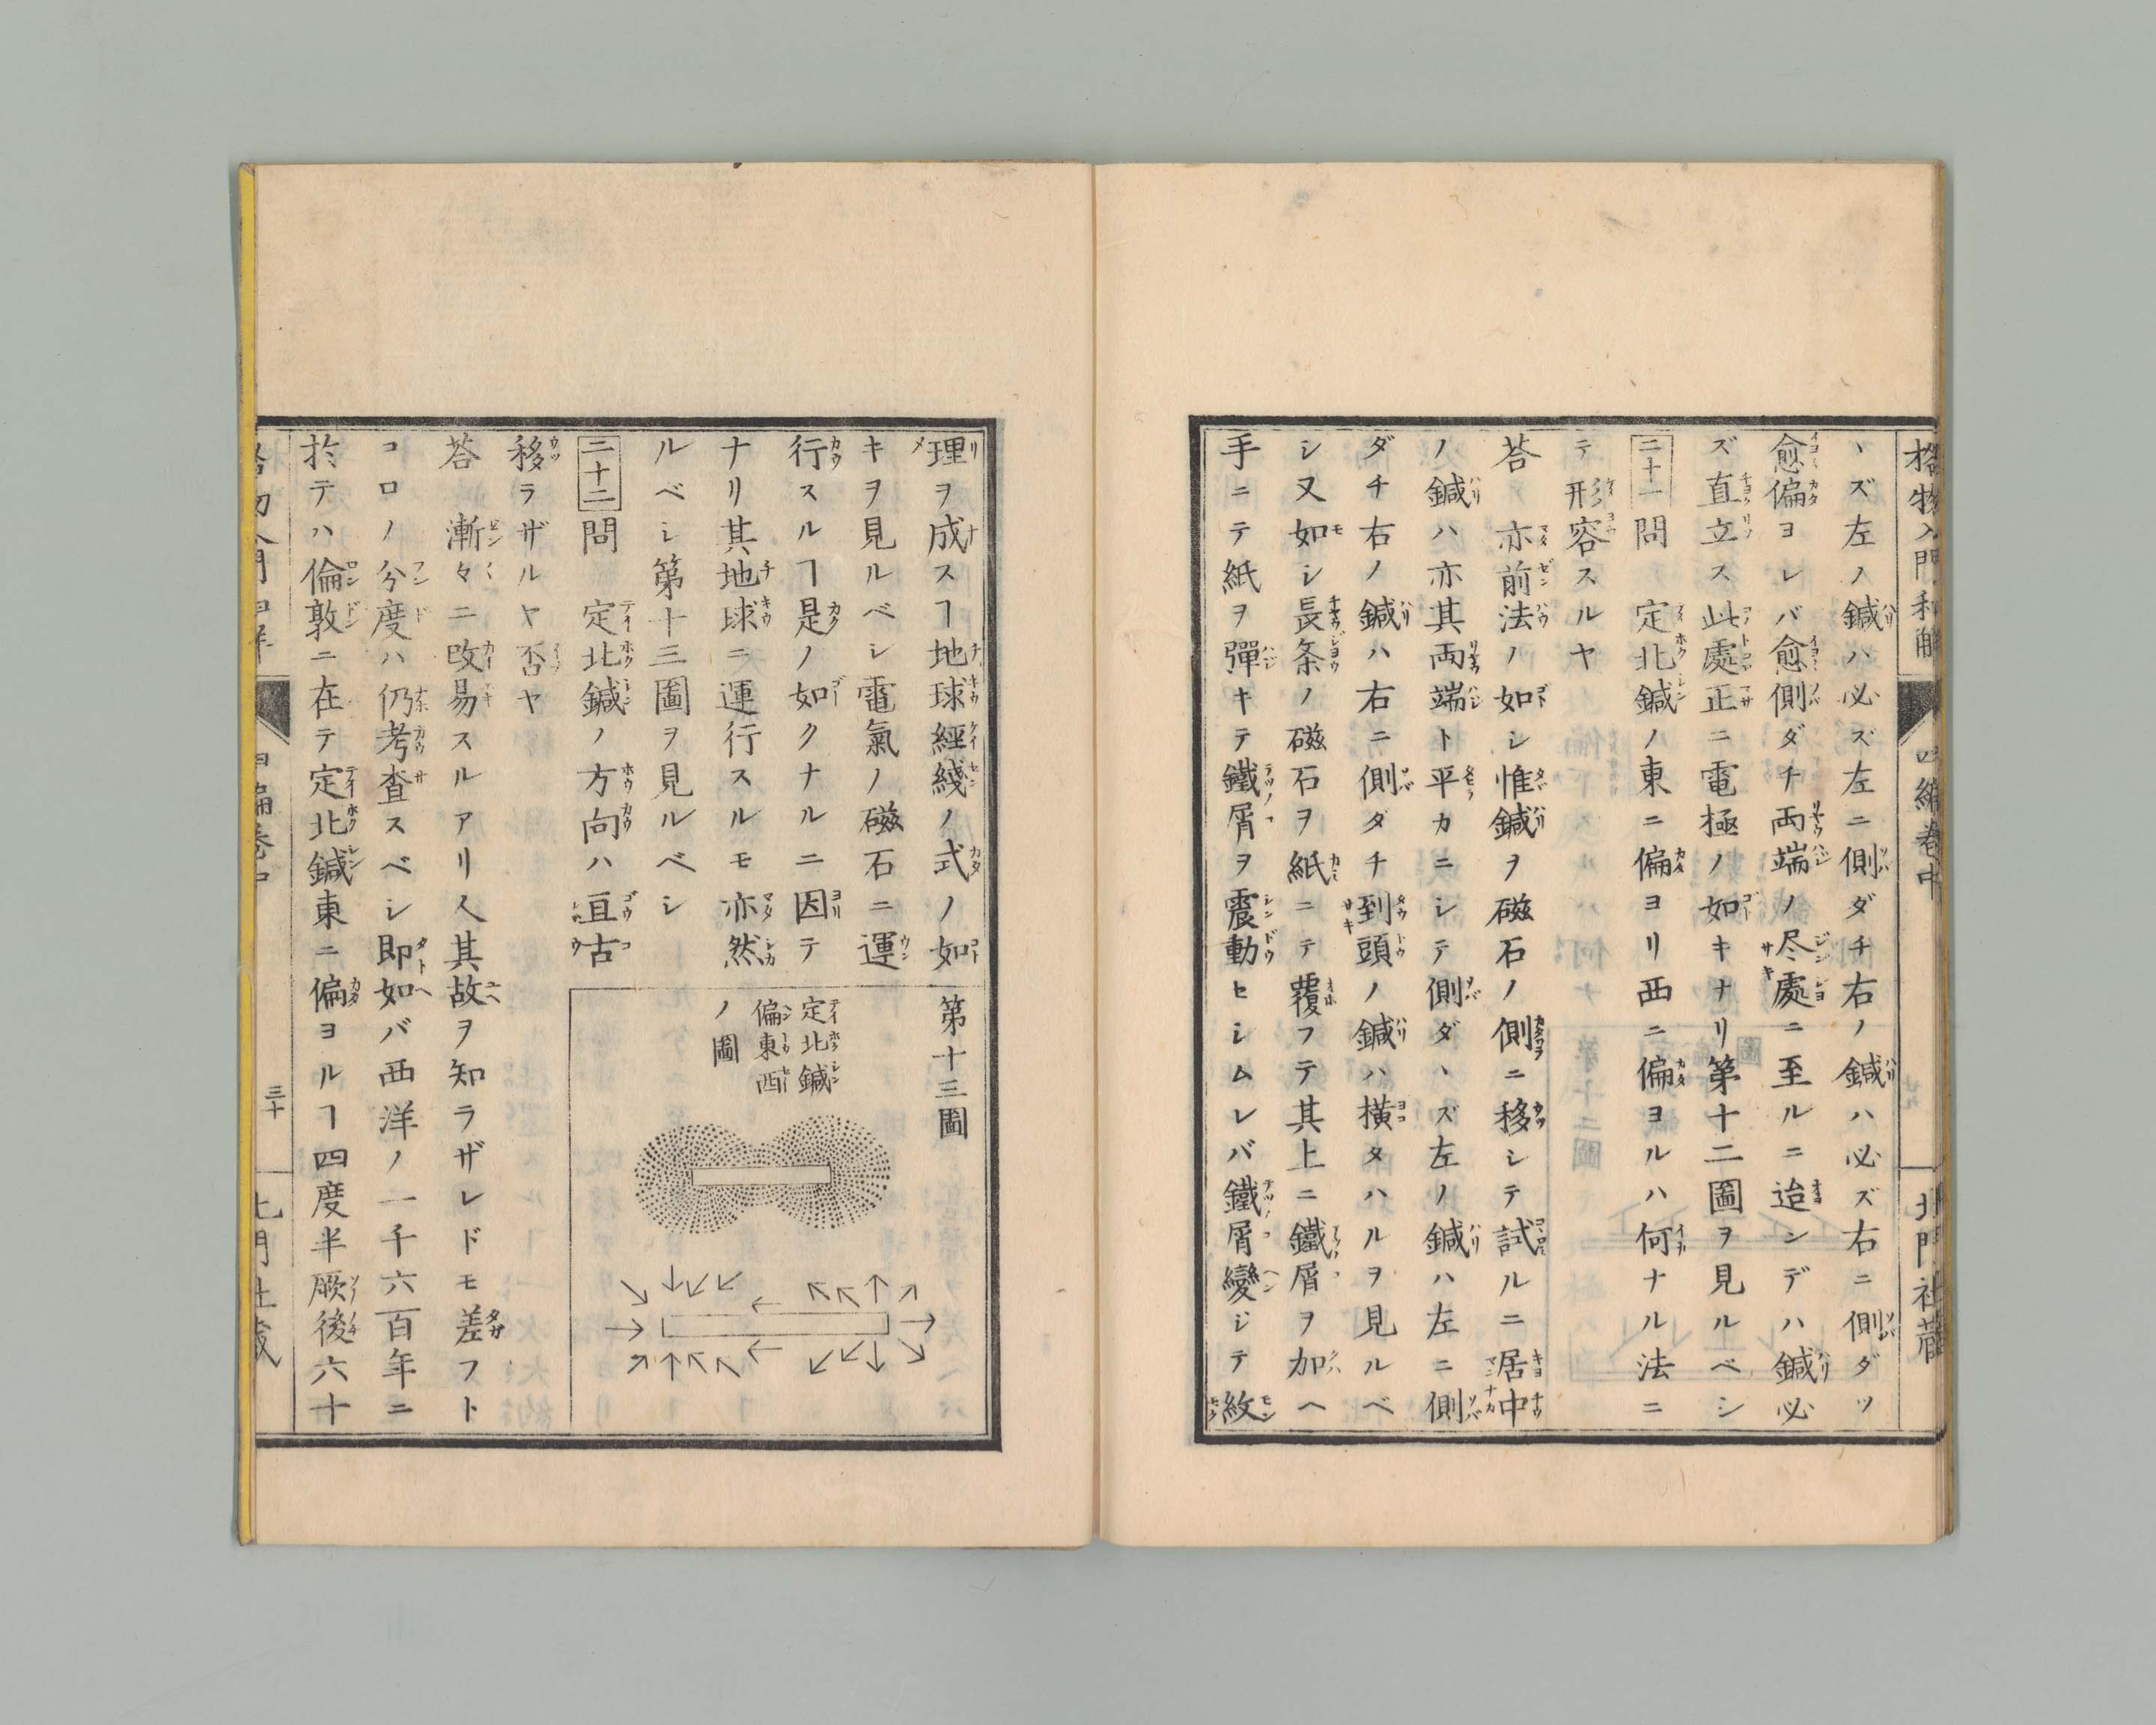 格物入門和解 四編卷中 北門社藏
ヽズ左ノ鍼ハ必ズ左ニ側ダチ右ノ鍼ハ必ズ右ニ側ダツ
愈偏ヨレバ愈側ダチ両端ノ尽處ニ至ルニ迨ンデハ鍼必
ズ直立ス此處正ニ電極ノ如キナリ第十二圖ヲ見ルベシ
二十一問 定北鍼ノ東ニ偏ヨリ西ニ偏ヨルハ何ナル法ニ
テ形容スルヤ
荅 亦前法ノ如シ惟鍼ヲ磁石ノ側ニ移シテ試ルニ居中
ノ鍼ハ亦其両端ト平カニシテ側ダヽズ左ノ鍼ハ左ニ側
ダチ右ノ鍼ハ右ニ側ダチ到頭ノ鍼ハ横タハルヲ見ルベ
シ又如シ長条ノ磁石ヲ紙ニテ覆フテ其上ニ鐵屑ヲ加ヘ
手ニテ紙ヲ彈キテ鐵屑ヲ震動セシムレバ鐵屑變シテ紋
理ヲ成スヿ地球經綫ノ式ノ如
キヲ見ルベシ電氣ノ磁石ニ運
行スルヿ是ノ如クナルニ因テ
ナリ其地球ニ運行スルモ亦然
ルベシ第十三圖ヲ見ルベシ
第十三圖
定北鍼
偏東西
ノ圖
二十二問 定北鍼ノ方向ハ亘古
移ラザルヤ否ヤ
荅 漸々ニ改易スルアリ人其故ヲ知ラザレドモ差フト
コロノ分度ハ仍考査スベシ即如バ西洋ノ一千六百年ニ
於テハ倫敦ニ在テ定北鍼東ニ偏ヨルヿ四度半厥後六十
三十